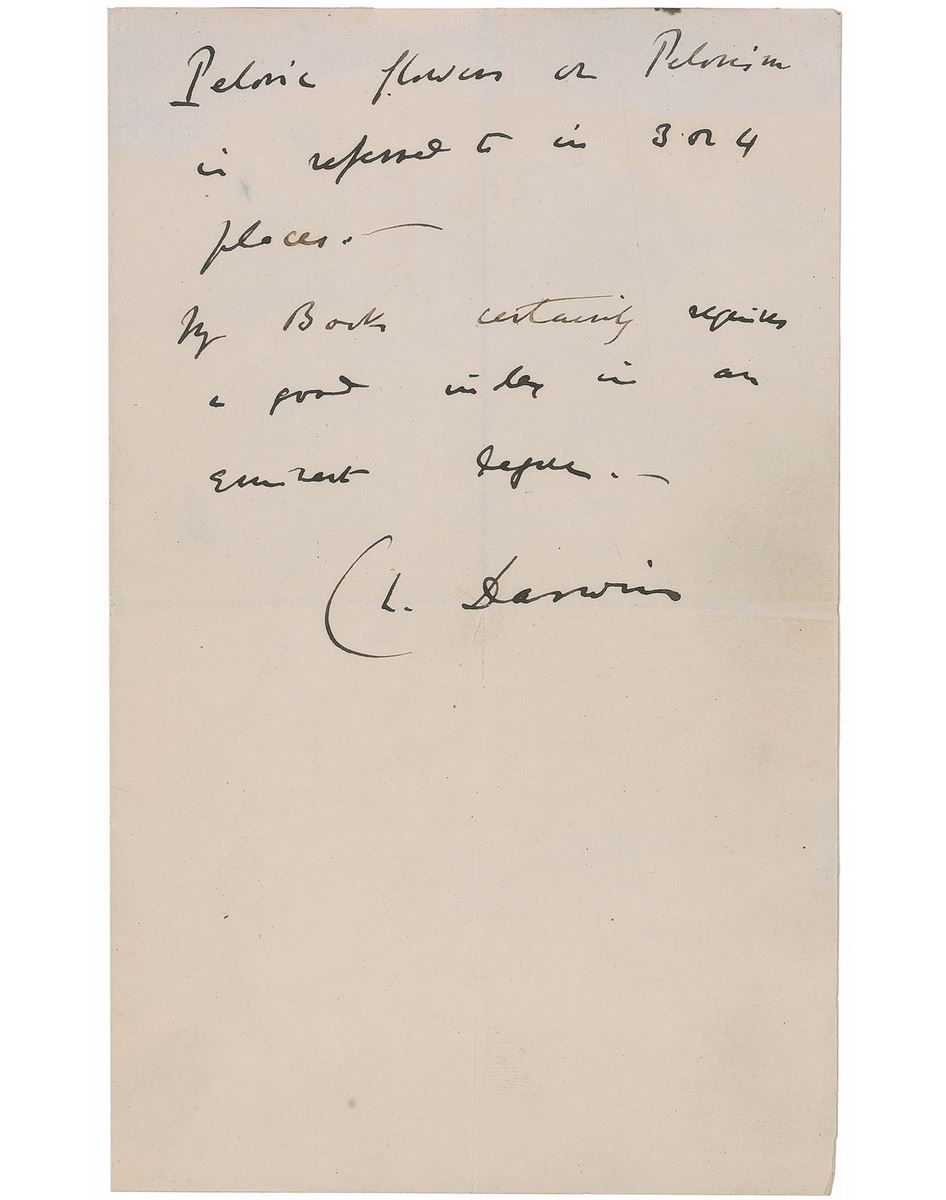 Peloric flowers or Pelorism
is referred to in 3 or 4
places. —
My Book certainly requires
a good index in an
eminent degree. —
Ch. Darwin